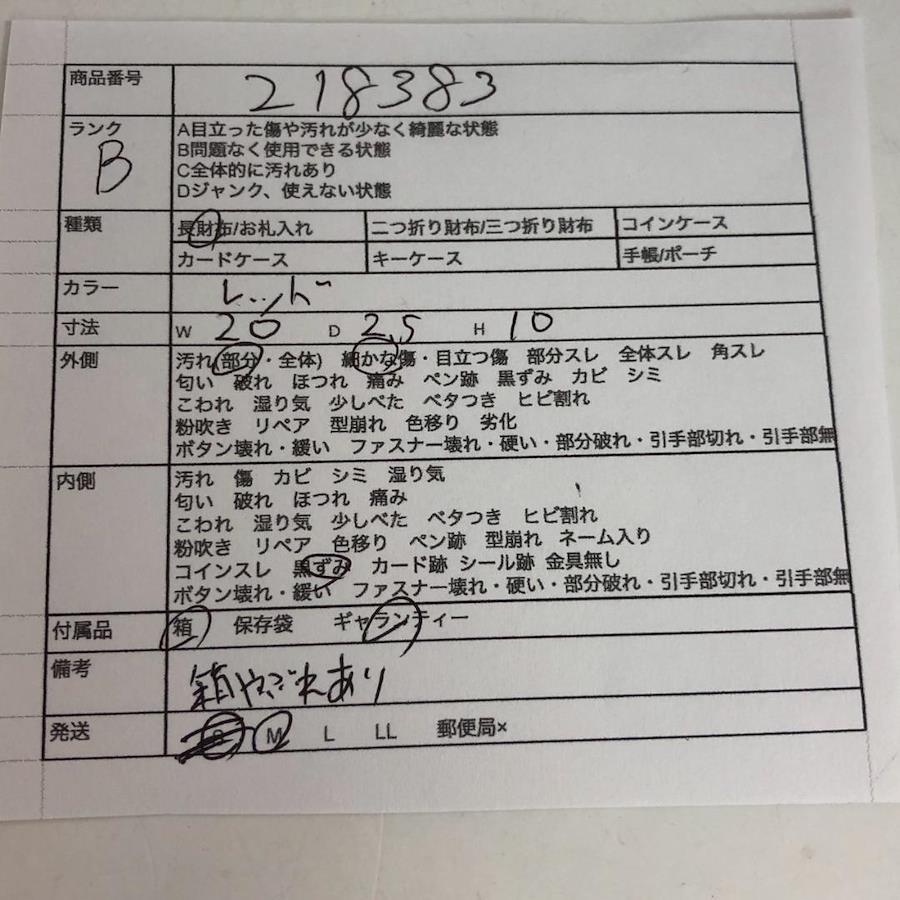 商品番号 218383
ランク B
A目立った傷や汚れが少なく綺麗な状態
B問題なく使用できる状態
C全体的に汚れあり
Dジャンク、使えない状態
種類 長財布/お札入れ 二つ折り財布/三つ折り財布 コインケース
カードケース キーケース 手帳/ポーチ
カラー レッド
寸法 W 20 D 2.5 H 10
外側 汚れ(部分・全体) 細かな傷・目立つ傷 部分スレ 全体スレ 角スレ
匂い 破れ ほつれ 痛み ペン跡 黒ずみ カビ シミ
こわれ 湿り気 少しべた ベタつき ヒビ割れ
粉吹き リペア 型崩れ 色移り 劣化
ボタン壊れ・緩い ファスナー壊れ・硬い・部分破れ・引手部切れ・引手部無
内側 汚れ 傷 カビ シミ 湿り気
匂い 破れ ほつれ 痛み
こわれ 湿り気 少しべた ベタつき ヒビ割れ
粉吹き リペア 色移り ペン跡 型崩れ ネーム入り
コインスレ 黒ずみ カード跡 シール跡 金具無し
ボタン壊れ・緩い ファスナー壊れ・硬い・部分破れ・引手部切れ・引手部無
付属品 箱 保存袋 ギャランティー
備考 箱やぶれあり
発送 S M L LL 郵便局×